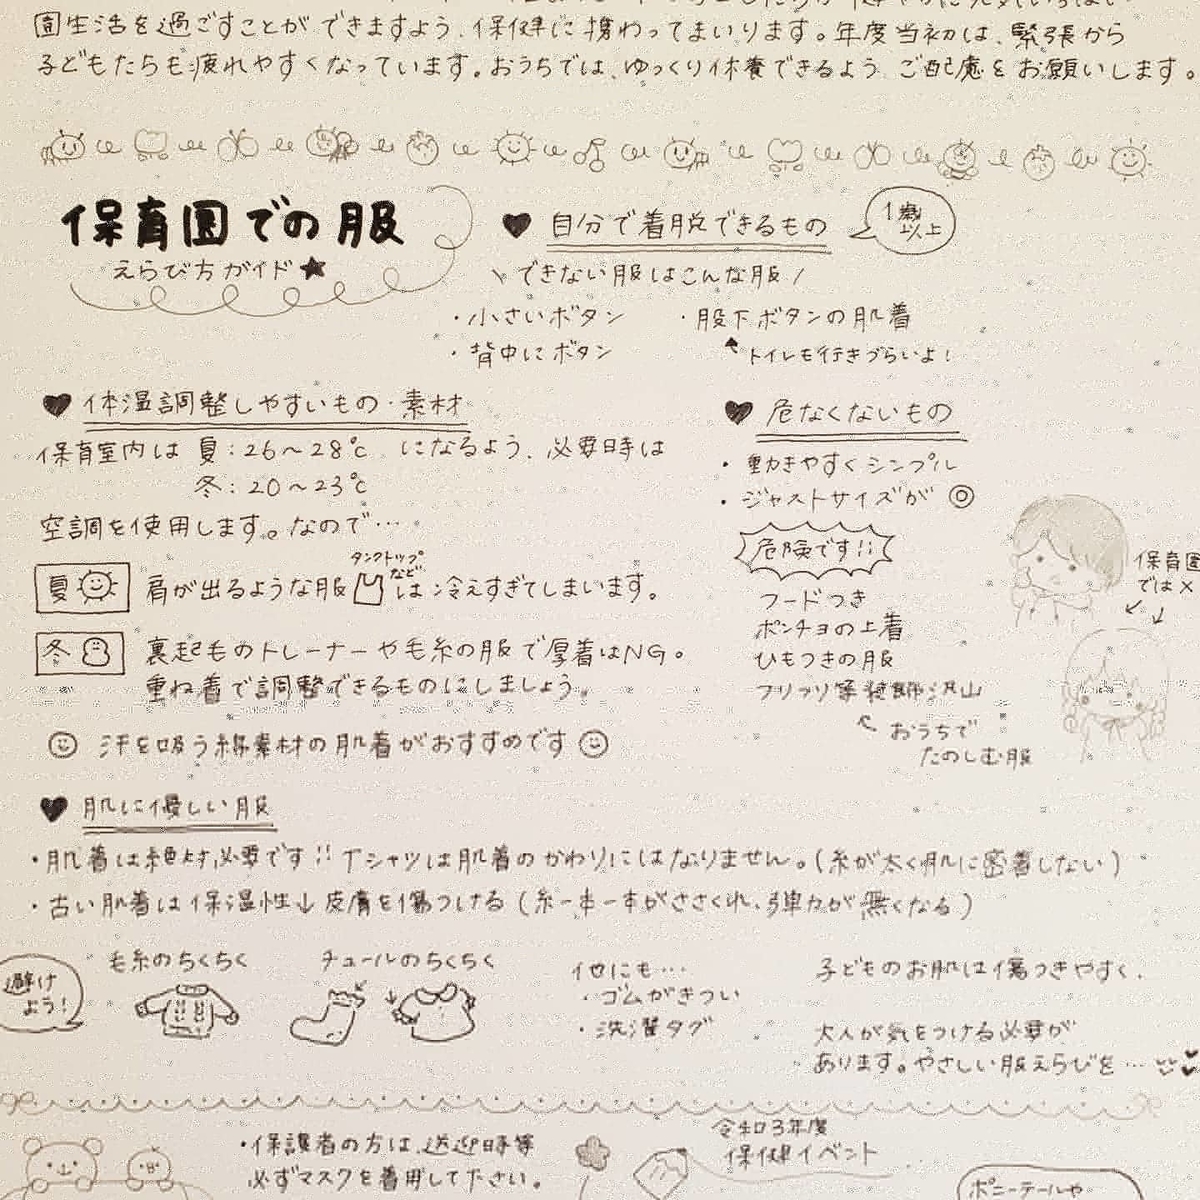 園生活を過ごすことができますよう、保健に携わってまいります。年度当初は、緊張から
子どもたちも疲れやすくなっています。おうちでは、ゆっくり休養できるよう ご配慮をお願いします。
保育園での服
えらび方ガイド★
♥ 自分で着脱できるもの
1歳
以上
\ できない服はこんな服 /
・小さいボタン
・背中にボタン
・股下ボタンの肌着
トイレも行きづらいよ!
♥ 体温調整しやすいもの・素材
保育室内は 夏:26~28℃ になるよう、必要時は
冬:20~23℃
空調を使用します。なので…
夏 肩が出るような服 は冷えすぎてしまいます。
タンクトップ
など
冬 裏起毛のトレーナーや毛糸の服で厚着はNG。
重ね着で調整できるものにしましょう。
汗を吸う綿素材の肌着がおすすめです
♥ 危なくないもの
・動きやすくシンプル
・ジャストサイズが ◎
危険です!!
フードつき
ポンチョの上着
ひもつきの服
フリフリ等装飾沢山
おうちで
たのしむ服
保育園
では×
♥ 肌に優しい服
・肌着は絶対必要です!! Tシャツは肌着のかわりにはなりません。(糸が太く肌に密着しない)
・古い肌着は保温性↓ 皮膚を傷つける (糸一本一本がささくれ、弾力が無くなる)
避け
よう!
毛糸のちくちく
チュールのちくちく
他にも…
・ゴムがきつい
・洗濯タグ
子どものお肌は傷つきやすく、
大人が気をつける必要が
あります。やさしい服えらびを…
・保護者の方は、送迎時等
必ずマスクを着用して下さい。
令和3年度
保健イベント
ポニーテールや